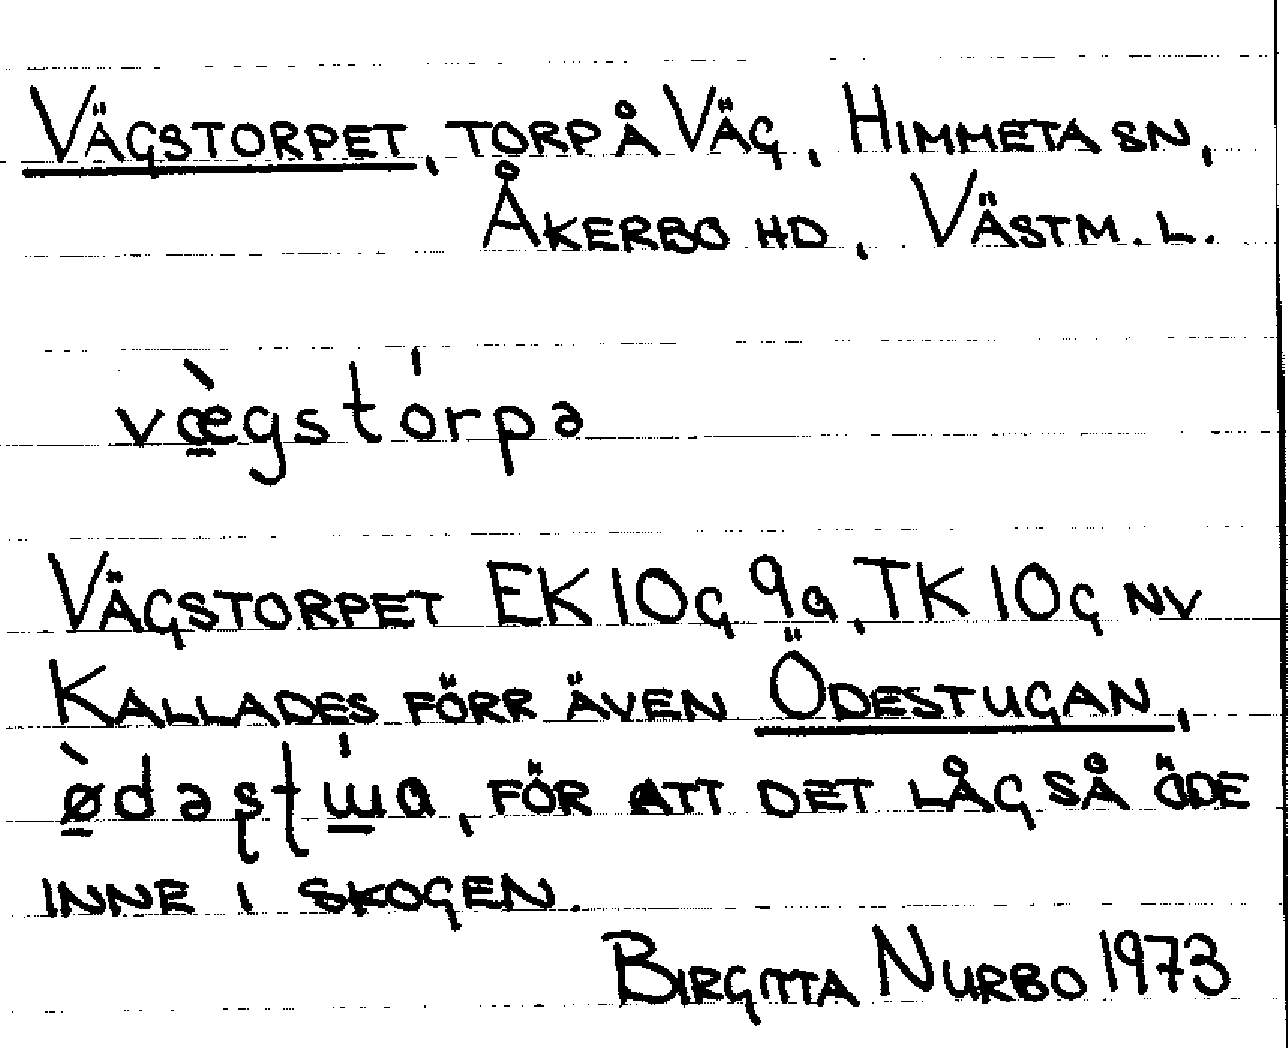 VÄGSTORPET, TORP Å VÄG, HIMMETA SN,
ÅKERBO HD, VÄSTM. L.
væ̠̀gstórpə
VÄGSTORPET EK 10G 9a, TK 10G NV
KALLADES FÖRR ÄVEN ÖDESTUGAN,
FÖR ATT DET LÅG SÅ ÖDE
INNE I SKOGEN.
BIRGITTA NURBO 1973